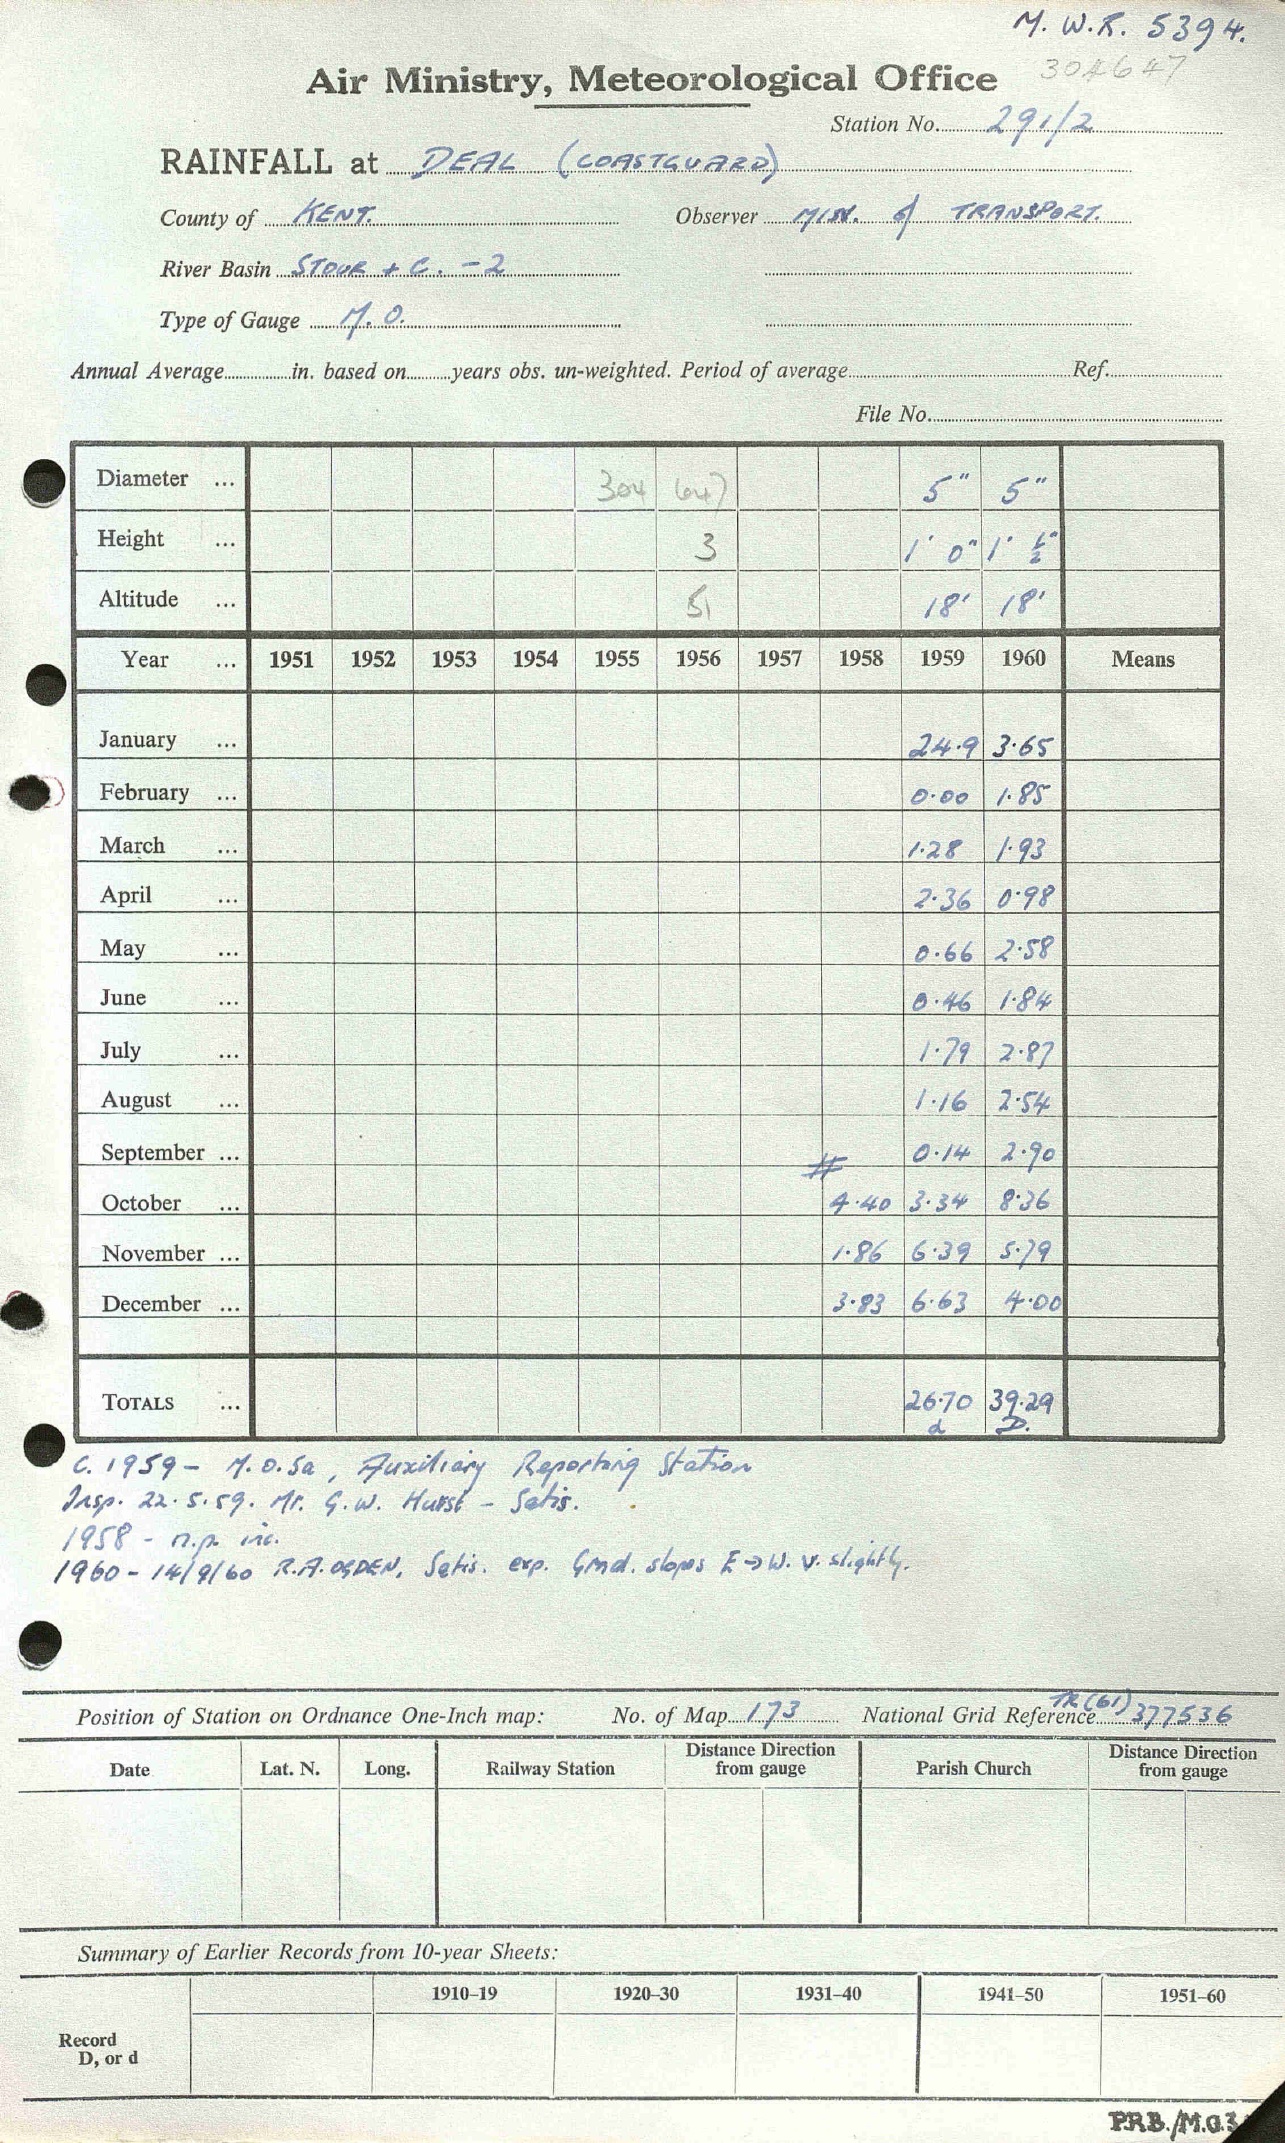 M. W. R. 5394.
304647
Air Ministry, Meteorological Office
Station No. 291/2
RAINFALL at DEAL (COASTGUARD)
County of KENT. Observer MIN. of TRANSPORT.
River Basin STOUR + C. -2
Type of Gauge M.O.
Annual Average in. based on years obs. un-weighted. Period of average Ref.
File No.
Diameter ... 304 647 5" 5"
Height ... 3 1' 0" 1' ½"
Altitude ... 51 18' 18'
Year ... 1951 1952 1953 1954 1955 1956 1957 1958 1959 1960 Means
January ... 24.9 3.65
February ... 0.00 1.85
March ... 1.28 1.93
April ... 2.36 0.98
May ... 0.66 2.58
June ... 0.46 1.84
July ... 1.79 2.87
August ... 1.16 2.54
September ... 0.14 2.90
#
October ... 4.40 3.34 8.36
November ... 1.86 6.39 5.79
December ... 3.83 6.63 4.00
TOTALS ... 26.70 39.29
d D.
C. 1959 - M.O.Sa, Auxiliary Reporting Station
Insp. 22.5.59. Mr. G.W. Hurst - Satis.
1958 - n.p. inc.
1960 - 14/9/60 R.A. OGDEN. Satis. exp. Gnd. slopes E→W. v. slightly.
Position of Station on Ordnance One-Inch map: No. of Map 173 National Grid Reference TR(61) 377536
Date Lat. N. Long. Railway Station Distance Direction from gauge Parish Church Distance Direction from gauge
Summary of Earlier Records from 10-year Sheets:
1910–19 1920–30 1931–40 1941–50 1951–60
Record
D, or d
P.R.B./M.O.3